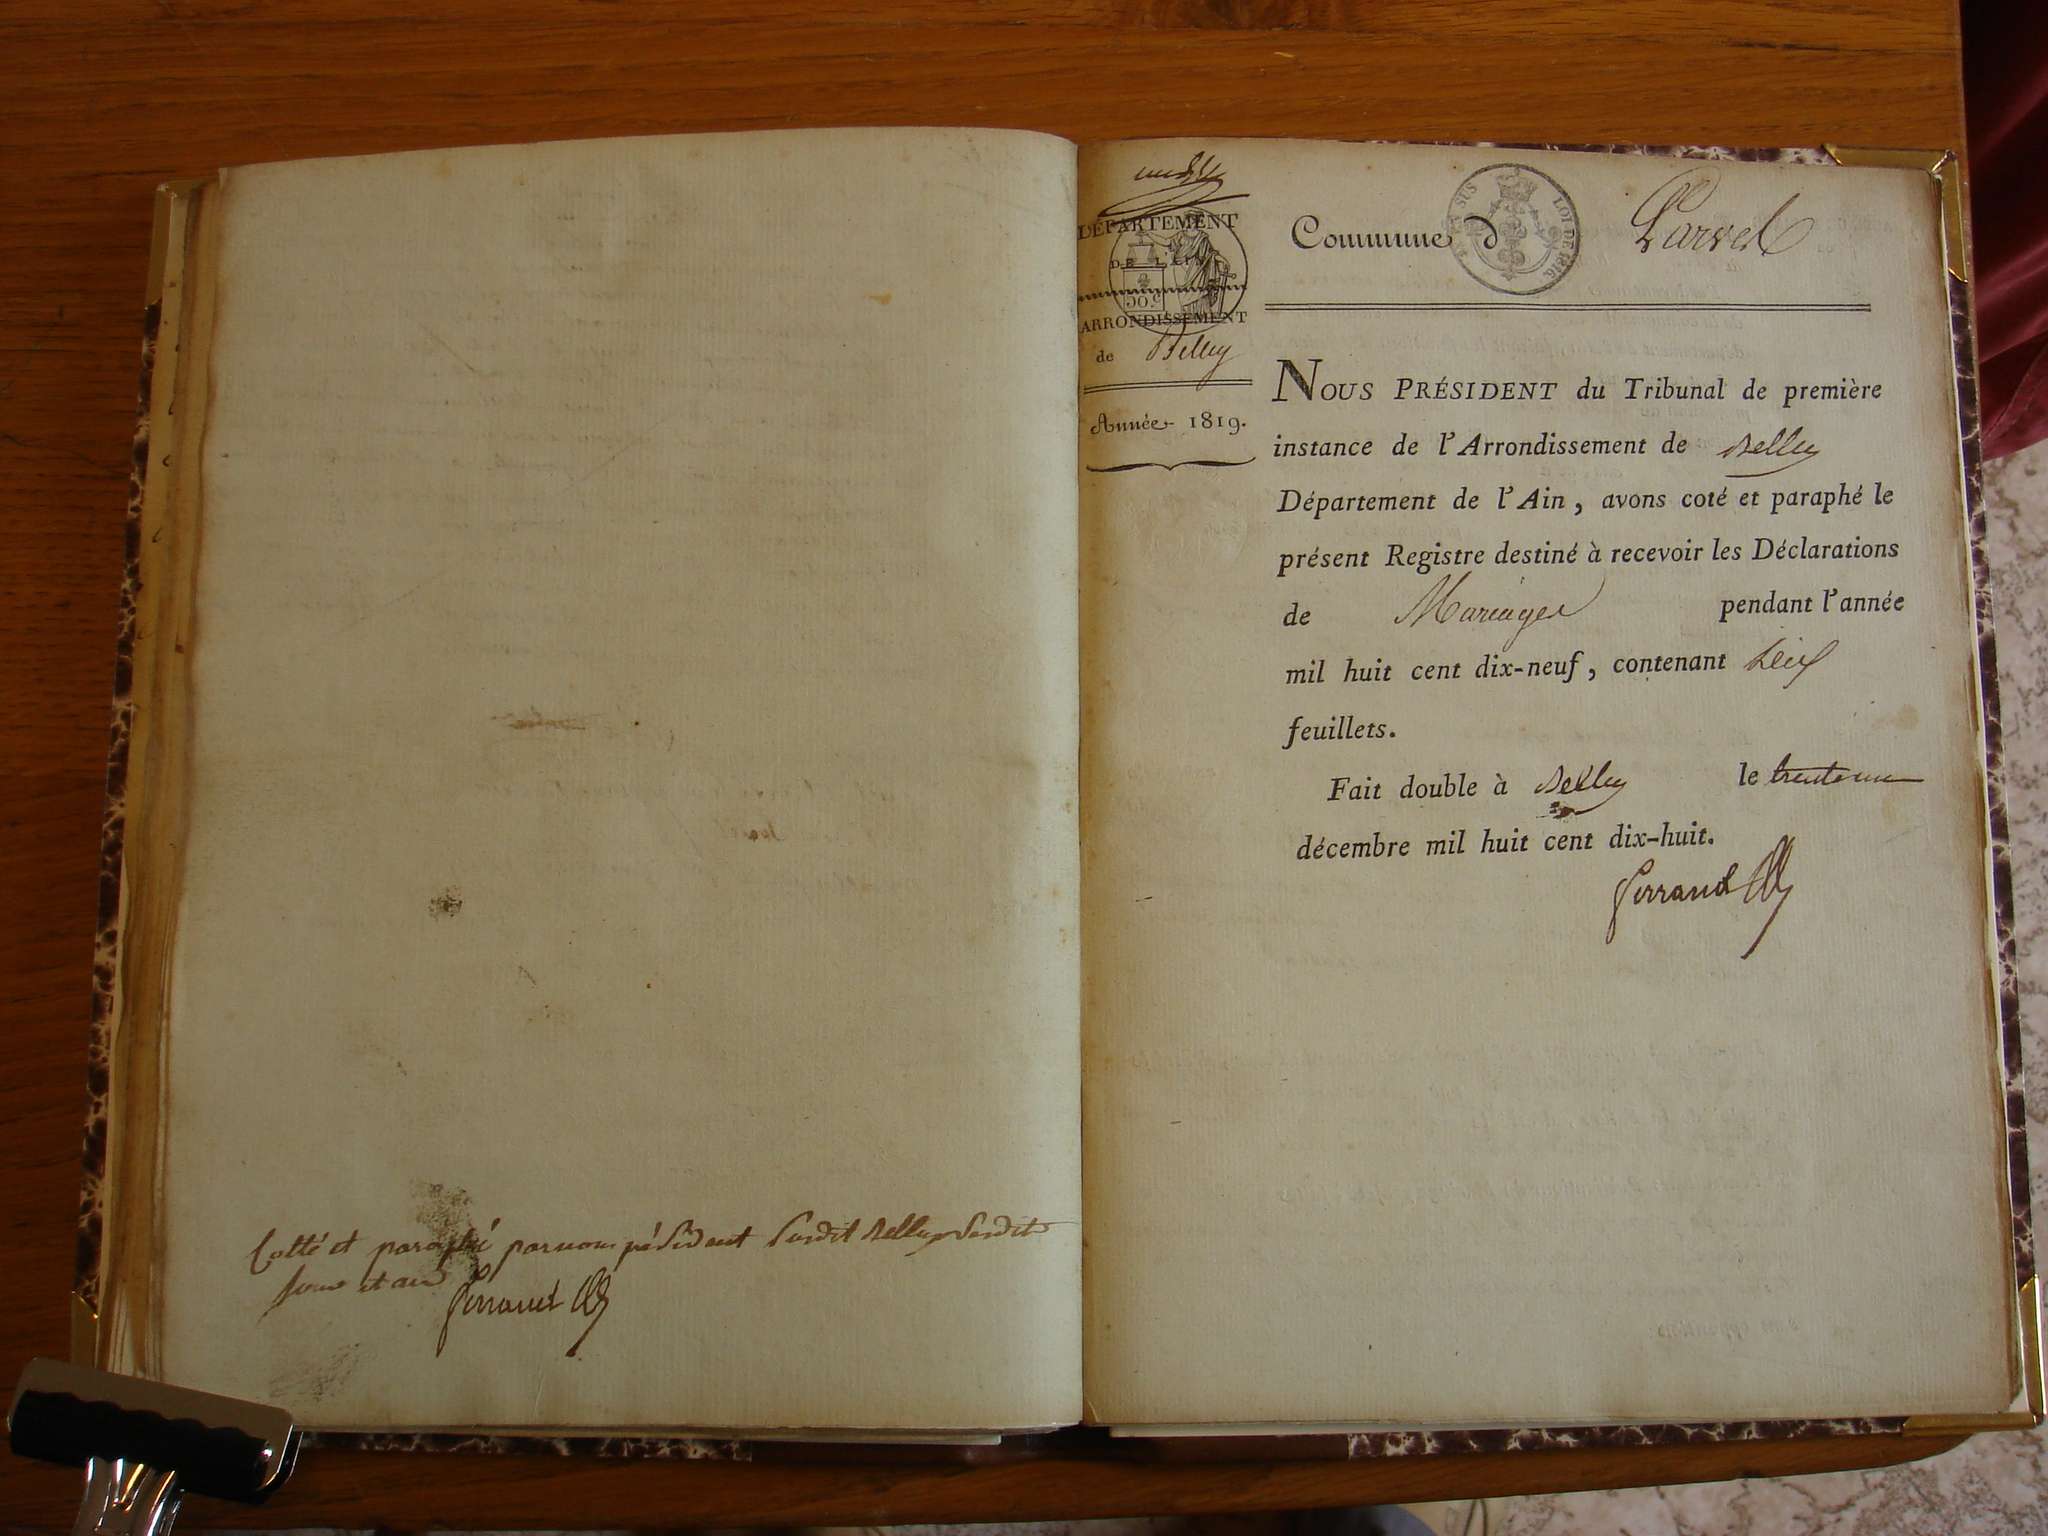 Cotté et paraphé par nous président susdit Belley susdits
jour et an
Ferrand
DÉPARTEMENT
DE L'AIN
50.c
ARRONDISSEMENT
de Belley
Année 1819.
LOI DE 1816
Commune d
NOUS PRÉSIDENT du Tribunal de première
instance de l'Arrondissement de Belley
Département de l'Ain, avons coté et paraphé le
présent Registre destiné à recevoir les Déclarations
de Mariages pendant l'année
mil huit cent dix-neuf, contenant
feuillets.
Fait double à Belley le trente un
décembre mil huit cent dix-huit.
Ferrand